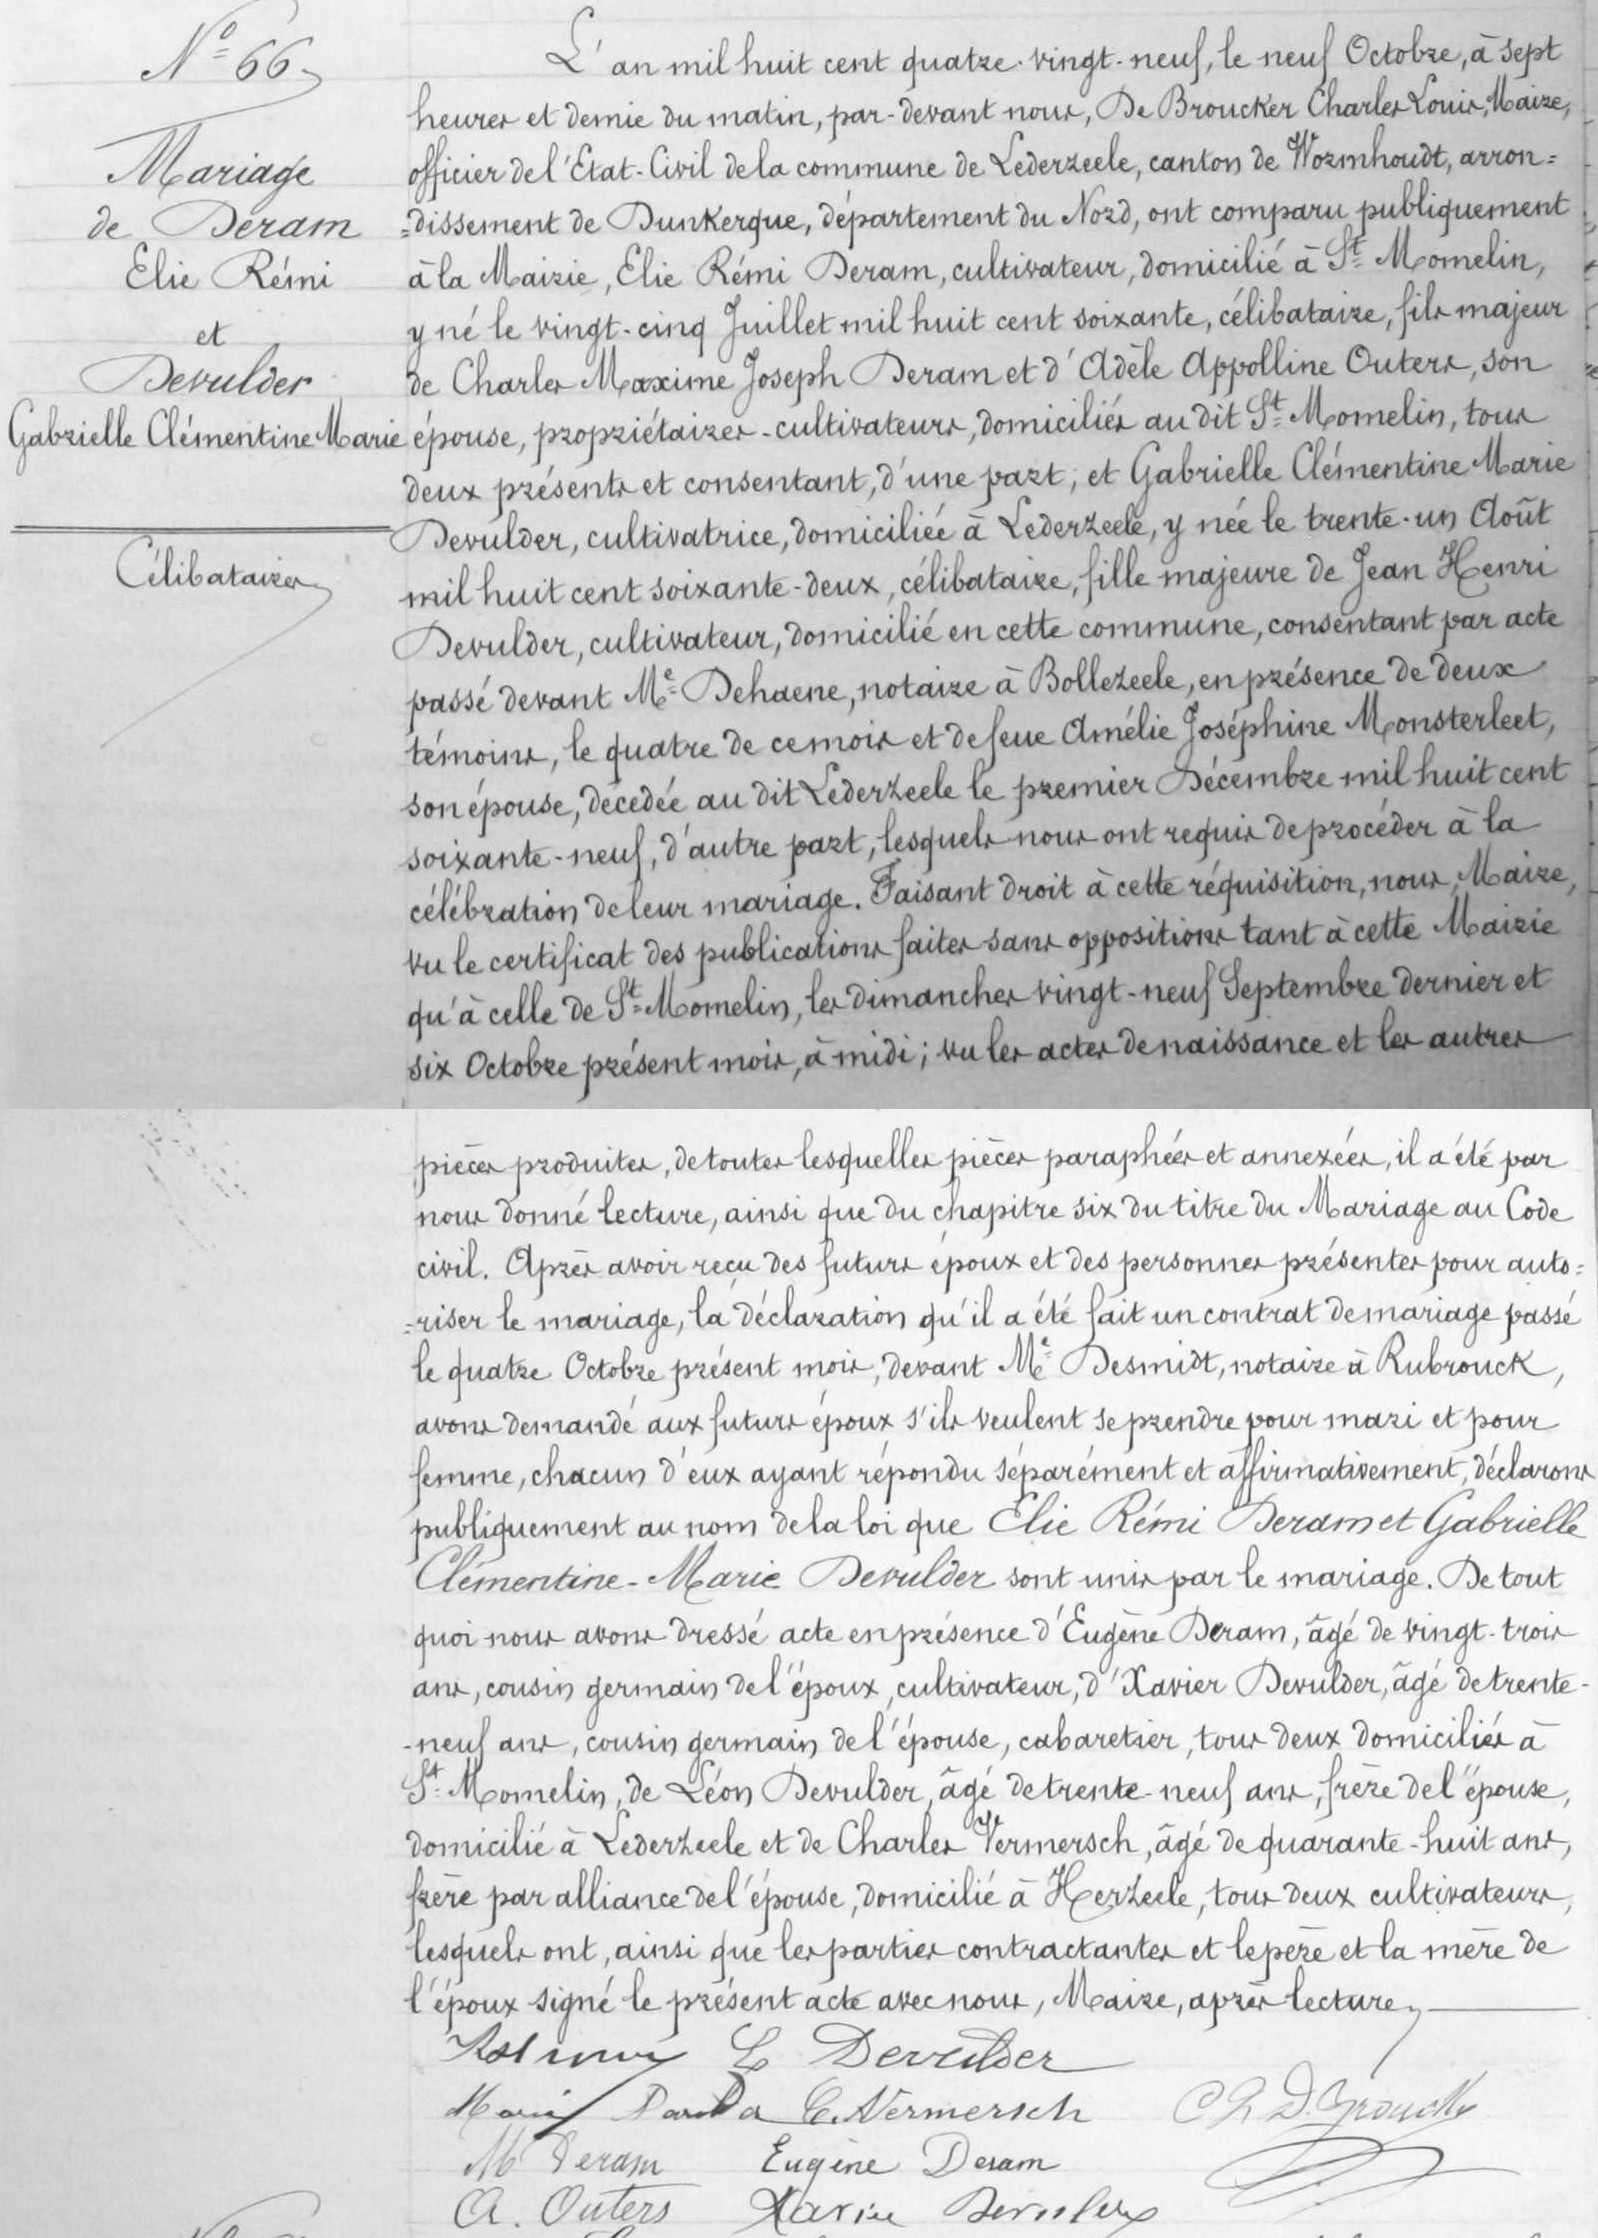 N° 66
Mariage
de Deram
Elie Rémi
et
Devulder
Gabrielle Clémentine Marie
Célibataires
L'an mil huit cent quatre-vingt-neuf, le neuf Octobre, à sept
heures et demie du matin, par-devant nous, De Broucker Charles Louis, Maire,
officier de l'Etat-Civil de la commune de Lederzeele, canton de Wormhoudt, arron=
=dissement de Dunkerque, département du Nord, ont comparu publiquement
à la Mairie, Elie Rémi Deram, cultivateur, domicilié à St Momelin,
y né le vingt-cinq Juillet mil huit cent soixante, célibataire, fils majeur
de Charles Maxime Joseph Deram et d'Adèle Appolline Outers, son
épouse, propriétaires-cultivateurs, domiciliés au dit St Momelin, tous
deux présents et consentant, d'une part; et Gabrielle Clémentine Marie
Devulder, cultivatrice, domiciliée à Lederzeele, y née le trente-un Août
mil huit cent soixante-deux, célibataire, fille majeure de Jean Henri
Devulder, cultivateur, domicilié en cette commune, consentant par acte
passé devant Me Dehaene, notaire à Bollezeele, en présence de deux
témoins, le quatre de ce mois et de feue Amélie Joséphine Monsterleet,
son épouse, décédée au dit Lederzeele le premier Décembre mil huit cent
soixante-neuf, d'autre part, lesquels nous ont requis de procéder à la
célébration de leur mariage. Faisant droit à cette réquisition, nous, Maire,
vu le certificat des publications faites sans oppositions tant à cette Mairie
qu'à celle de St Momelin, les dimanches vingt-neuf Septembre dernier et
six Octobre présent mois, à midi; vu les actes de naissance et les autres
pièces produites, de toutes lesquelles pièces paraphées et annexées, il a été par
nous donné lecture, ainsi que du chapitre six du titre du Mariage au Code
civil. Après avoir reçu des futurs époux et des personnes présentes pour auto=
=riser le mariage, la déclaration qu'il a été fait un contrat de mariage passé
le quatre Octobre présent mois, devant Me Desmidt, notaire à Rubrouck,
avons demandé aux futurs époux s'ils veulent se prendre pour mari et pour
femme, chacun d'eux ayant répondu séparément et affirmativement, déclarons
publiquement au nom de la loi que Elie Rémi Deram et Gabrielle
Clémentine-Marie Devulder sont unis par le mariage. De tout
quoi nous avons dressé acte en présence d'Eugène Deram, âgé de vingt-trois
ans, cousin germain de l'époux, cultivateur, d'Xavier Devulder, âgé de trente-
-neuf ans, cousin germain de l'épouse, cabaretier, tous deux domiciliés à
St Momelin, de Léon Devulder, âgé de trente-neuf ans, frère de l'épouse,
domicilié à Lederzeele et de Charles Vermersch, âgé de quarante-huit ans,
frère par alliance de l'épouse, domicilié à Herzeele, tous deux cultivateurs,
lesquels ont, ainsi que les parties contractantes et le père et la mère de
l'époux signé le présent acte avec nous, Maire, après lecture
L Devulder
C. Vermersch
M Deram Eugène Deram
A. Outers Xavier Devulder